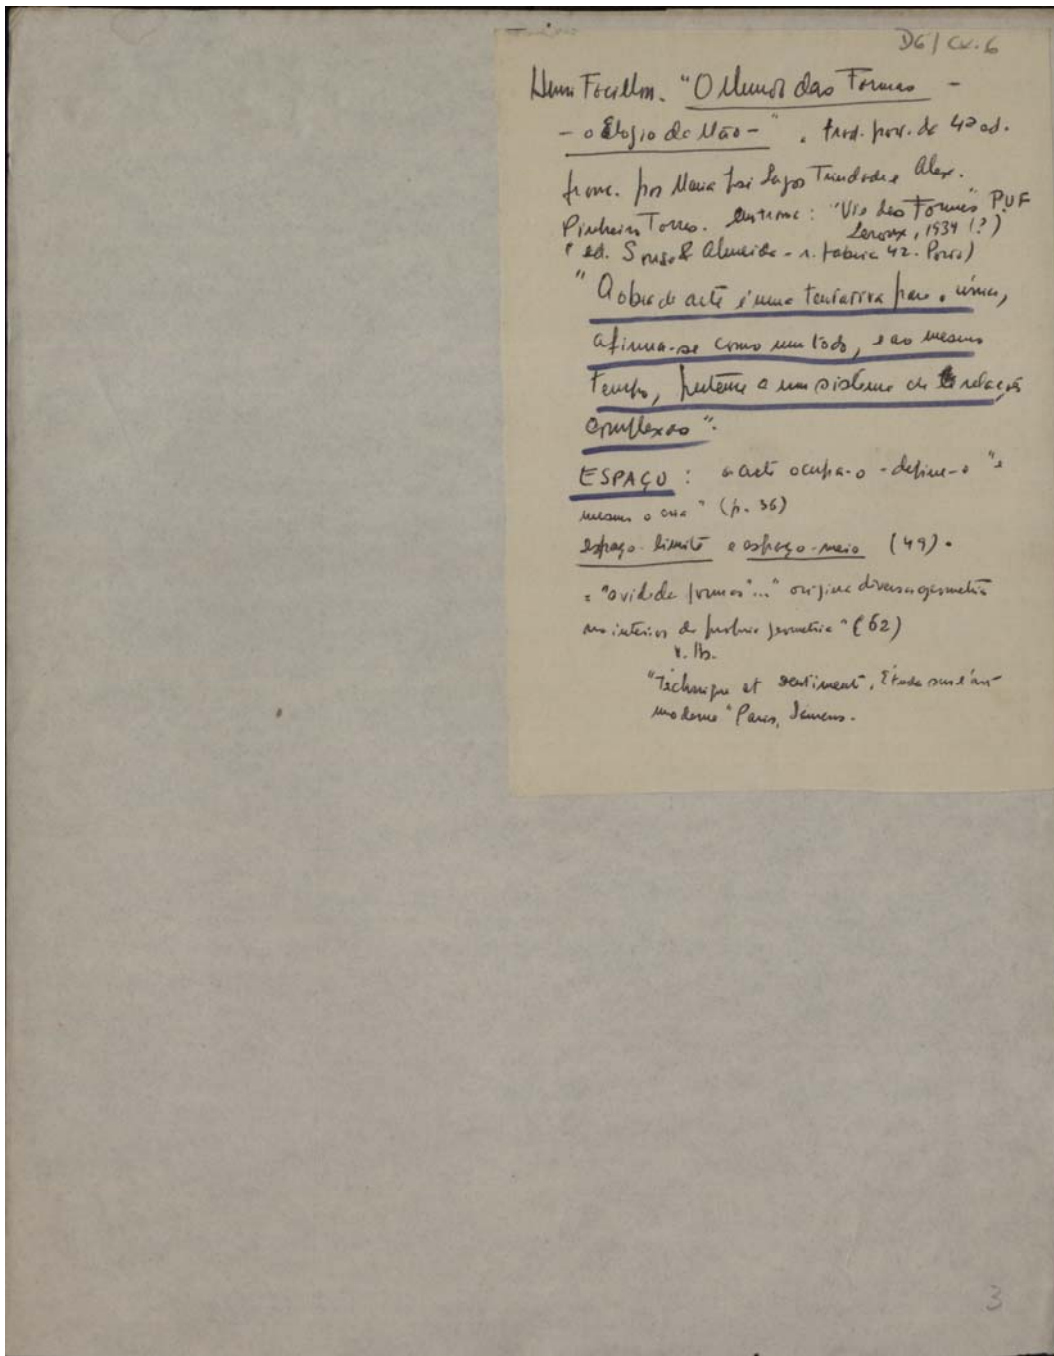 D6 / Cx. 6
Henri Focillon. "O Mundo das Formas -
- o Elogio da Mão - " . trad. port. da 4ª ed.
franc. por Maria José Lagos Trindade e Alex.
Pinheiro Torres. : "Vie des Formes" PUF
Leroux, 1934 (?)
ed. Sousa & Almeida - r. Fábrica 42. Porto)
"A obra de arte é uma tentativa para o único,
afirma-se como um todo, e ao mesmo
tempo, pertence a um sistema de relações
complexas".
ESPAÇO : a arte ocupa-o - define-o "e
mesmo o cria" (p. 36)
espaço-limite e espaço-meio (49).
= "a vida das formas"..." origina diversa geometria
no interior da própria geometria" (62)
"Technique et sentiment, Étude sur l'art
moderne" Paris,
3